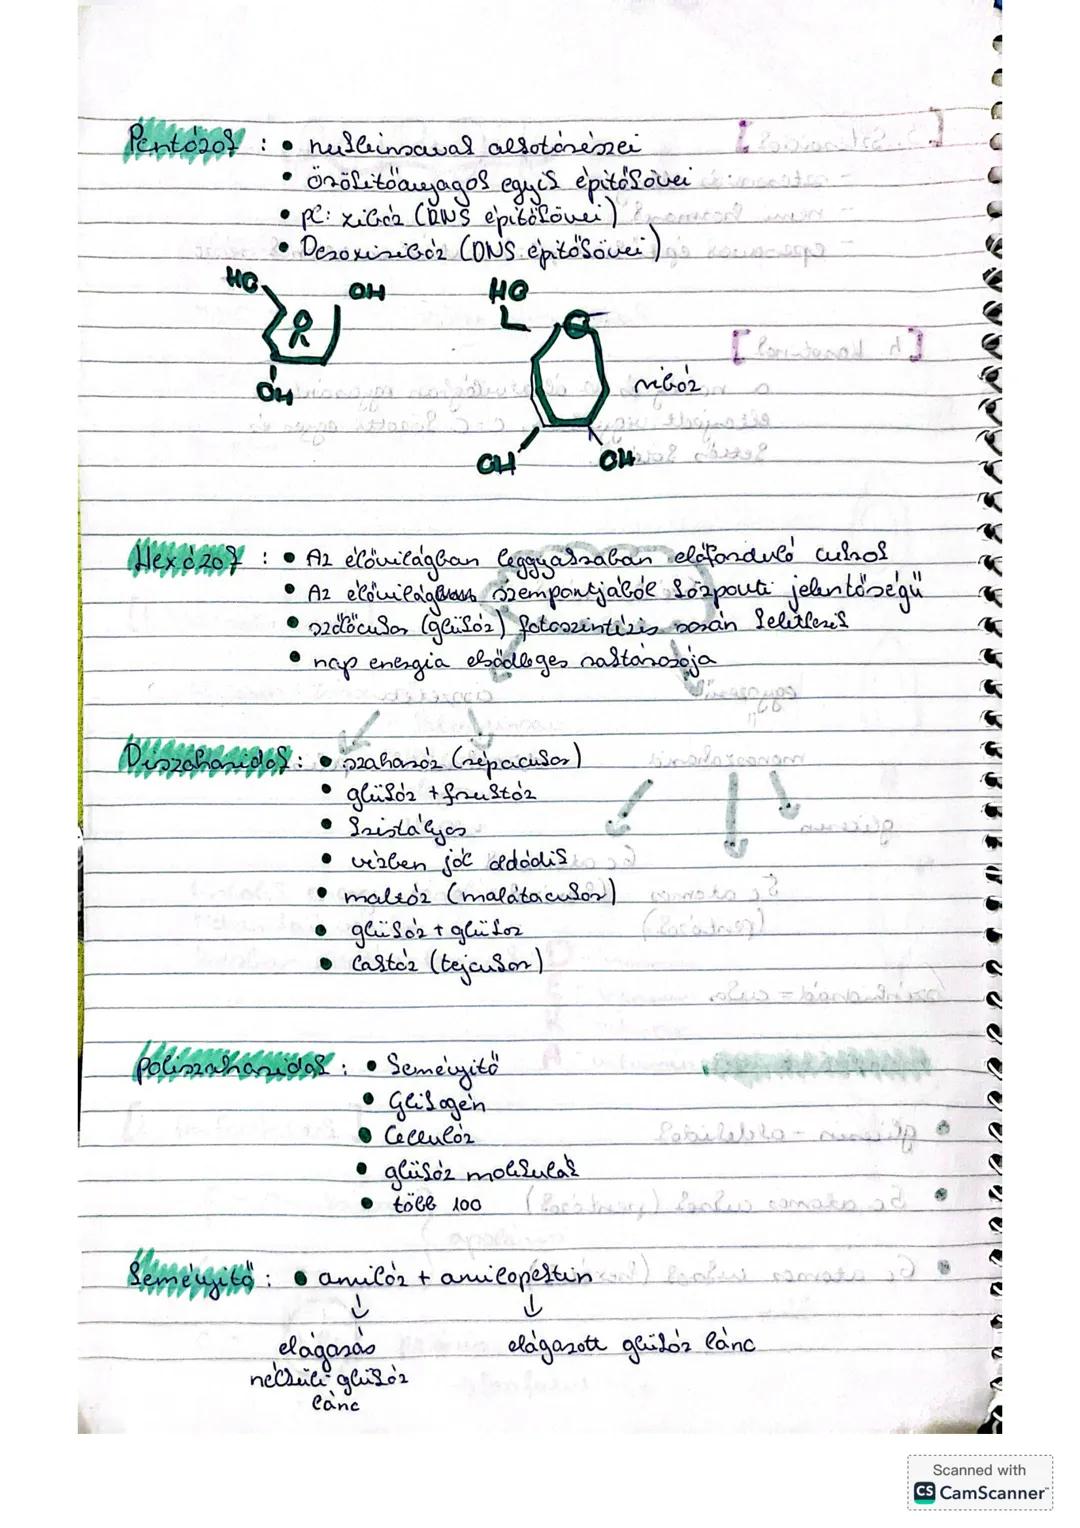 Pentózok : • nukleinsavak alkotórészei
• örökítőanyagok egyik építőkövei
• pl: ribóz (RNS építőkövei)
• Dezoxiribóz (DNS építőkövei)
HO OH HO
R O
OH ribóz
OH OH
Hexózok : • Az élővilágban leggyakrabban előforduló cukrok
• Az élővilág szempontjából központi jelentőségű
• szőlőcukor (glükóz) fotoszintézis során keletkezik
• nap energia elsődleges raktározója
Diszaharidok : • szaharóz (répacukor)
• glükóz + fruktóz
• kristályos
• vízben jól oldódik
• maltóz (malátacukor)
• glükóz + glükóz
• laktóz (tejcukor)
poliszaharidok : • keményítő
• Glikogén
• Cellulóz
• glükóz molekulák
• több 100
keményítő : • amilóz + amilopektin
↓ ↓
elágazás elágazott glükóz lánc
nélküli glükóz
lánc
Scanned with
CS CamScanner